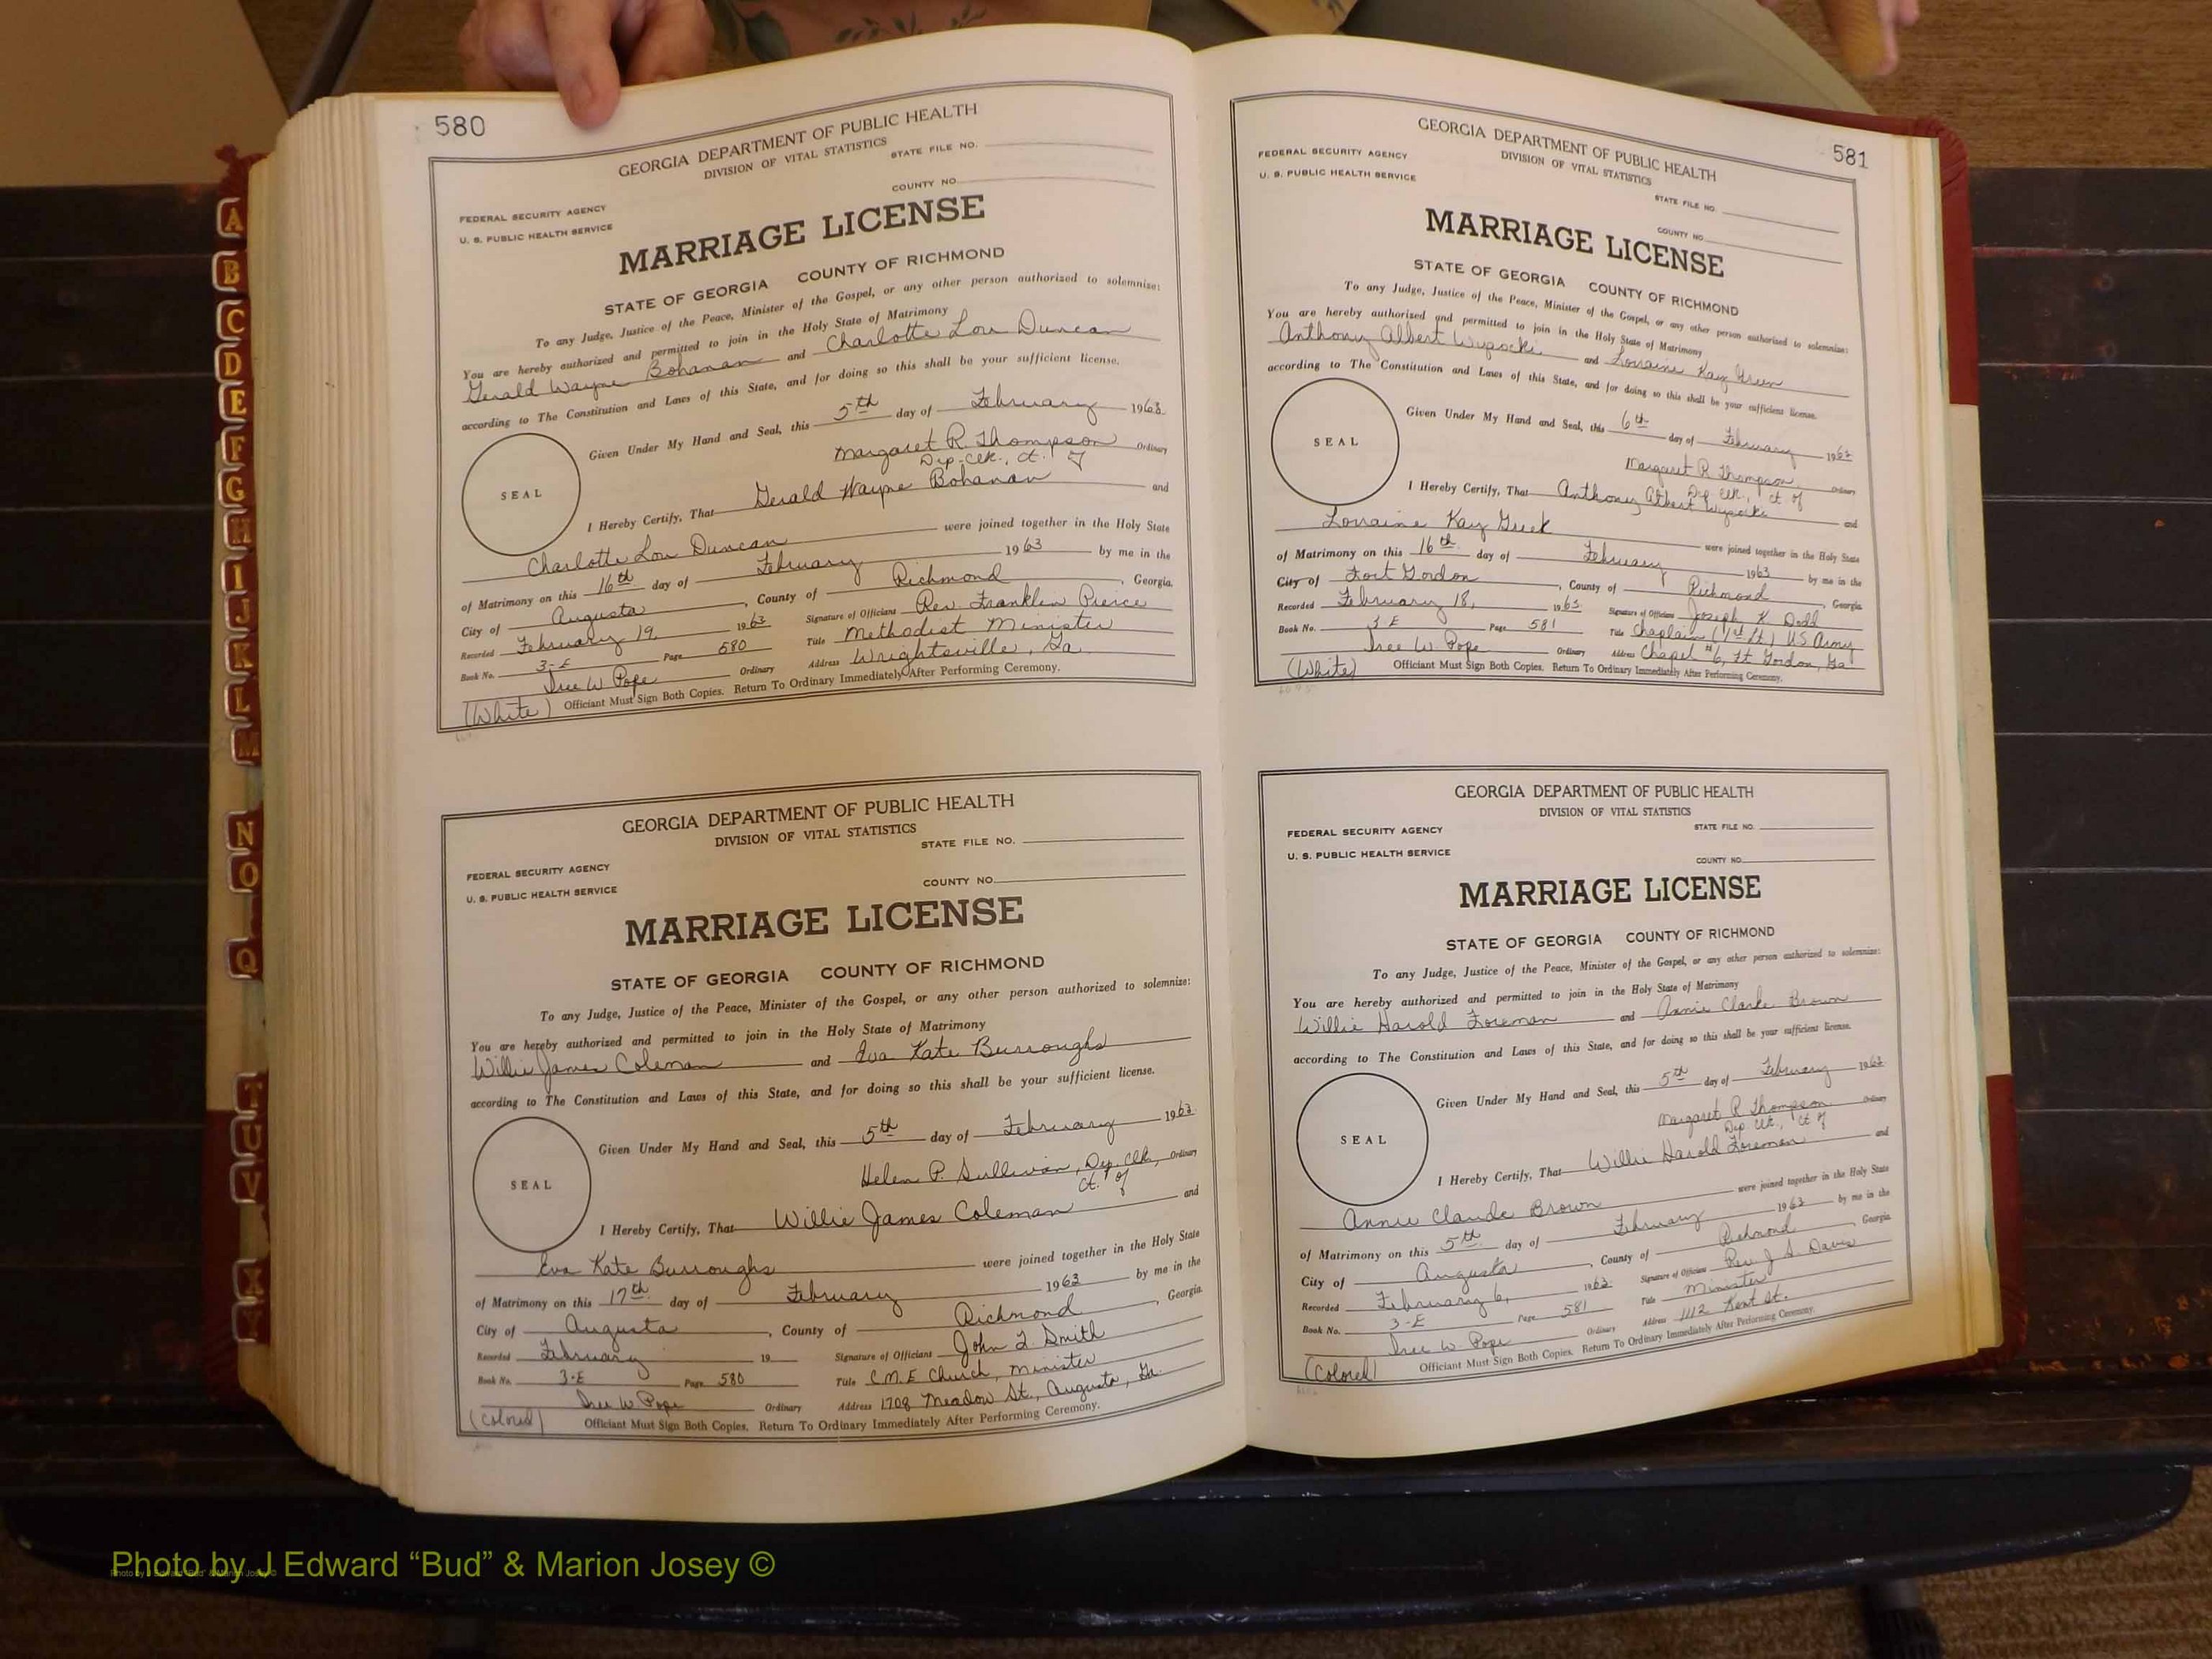 580
GEORGIA DEPARTMENT OF PUBLIC HEALTH
DIVISION OF VITAL STATISTICS
STATE FILE NO.
COUNTY NO.
FEDERAL SECURITY AGENCY
U. S. PUBLIC HEALTH SERVICE
MARRIAGE LICENSE
STATE OF GEORGIA COUNTY OF RICHMOND
To any Judge, Justice of the Peace, Minister of the Gospel, or any other person authorized to solemnize:
You are hereby authorized and permitted to join in the Holy State of Matrimony
Gerald Wayne Bohanan and Charlotte Lou Duncan
according to The Constitution and Laws of this State, and for doing so this shall be your sufficient license.
Given Under My Hand and Seal, this 5th day of February 1963
Margaret R Thompson Ordinary
Dep. Clk., Ct. of
SEAL
I Hereby Certify, That Gerald Wayne Bohanan and
Charlotte Lou Duncan were joined together in the Holy State
of Matrimony on this 16th day of February 1963 by me in the
City of Augusta, County of Richmond, Georgia.
Recorded February 19, 1963 Signature of Officiant Rev. Franklin Pierce
Book No. 3-E Page 580 Title Methodist Minister
Iree W. Pope Ordinary Address Wrightsville, Ga
(White) Officiant Must Sign Both Copies. Return To Ordinary Immediately After Performing Ceremony.
GEORGIA DEPARTMENT OF PUBLIC HEALTH
DIVISION OF VITAL STATISTICS
STATE FILE NO.
FEDERAL SECURITY AGENCY
U. S. PUBLIC HEALTH SERVICE
COUNTY NO.
MARRIAGE LICENSE
STATE OF GEORGIA COUNTY OF RICHMOND
To any Judge, Justice of the Peace, Minister of the Gospel, or any other person authorized to solemnize:
You are hereby authorized and permitted to join in the Holy State of Matrimony
Willie James Coleman and Eva Kate Burroughs
according to The Constitution and Laws of this State, and for doing so this shall be your sufficient license.
Given Under My Hand and Seal, this 5th day of February 1963
Helen P. Sullivan, Dep. Clk., Ordinary
Ct. of
SEAL
I Hereby Certify, That Willie James Coleman and
Eva Kate Burroughs were joined together in the Holy State
of Matrimony on this 17th day of February 1963 by me in the
City of Augusta, County of Richmond, Georgia.
Recorded February 19 Signature of Officiant John L Smith
Book No. 3-E Page 580 Title C.M.E Church, Minister
Iree W Pope Ordinary Address 1708 Meadow St., Augusta, Ga.
(Colored) Officiant Must Sign Both Copies. Return To Ordinary Immediately After Performing Ceremony.
581
GEORGIA DEPARTMENT OF PUBLIC HEALTH
DIVISION OF VITAL STATISTICS
FEDERAL SECURITY AGENCY
U. S. PUBLIC HEALTH SERVICE
STATE FILE NO.
COUNTY NO.
MARRIAGE LICENSE
STATE OF GEORGIA COUNTY OF RICHMOND
To any Judge, Justice of the Peace, Minister of the Gospel, or any other person authorized to solemnize:
You are hereby authorized and permitted to join in the Holy State of Matrimony
Anthony Albert Wysocki and Lorraine Kay
according to The Constitution and Laws of this State, and for doing so this shall be your sufficient license.
Given Under My Hand and Seal, this 6th day of February 1963
Margaret R Thompson Ordinary
Dep Clk., Ct of
SEAL
I Hereby Certify, That Anthony Albert Wysocki and
Lorraine Kay were joined together in the Holy State
of Matrimony on this 16th day of February 1963 by me in the
City of Fort Gordon, County of Richmond, Georgia
Recorded February 18, 1963 Signature of Officiant Joseph K. Dodd
Book No. 3 E Page 581 Title Chaplain (1st Lt) US Army
Iree W. Pope Ordinary Address Chapel #6, Ft Gordon, Ga
(White) Officiant Must Sign Both Copies. Return To Ordinary Immediately After Performing Ceremony.
GEORGIA DEPARTMENT OF PUBLIC HEALTH
DIVISION OF VITAL STATISTICS
FEDERAL SECURITY AGENCY
STATE FILE NO.
U. S. PUBLIC HEALTH SERVICE
COUNTY NO.
MARRIAGE LICENSE
STATE OF GEORGIA COUNTY OF RICHMOND
To any Judge, Justice of the Peace, Minister of the Gospel, or any other person authorized to solemnize:
You are hereby authorized and permitted to join in the Holy State of Matrimony
Willie Harold Foreman and Annie Clarke Brown
according to The Constitution and Laws of this State, and for doing so this shall be your sufficient license.
Given Under My Hand and Seal, this 5th day of February 1963
Margaret R Thompson Ordinary
Dep Clk., Ct of
SEAL
I Hereby Certify, That Willie Harold Foreman and
Annie Claude Brown were joined together in the Holy State
of Matrimony on this 5th day of February 1963 by me in the
City of Augusta, County of Richmond, Georgia
Recorded February 6, 1963 Signature of Officiant Rev J. S. Davis
Book No. 3-E Page 581 Title Minister
Iree W. Pope Ordinary Address 1112 Kent St.
(Colored) Officiant Must Sign Both Copies. Return To Ordinary Immediately After Performing Ceremony.
A
B
C
D
E
F
G
H
I
J
K
L
M
N
O
Q
T
U
V
X
Y
Photo by J Edward “Bud” & Marion Josey ©
Photo by J Edward “Bud” & Marion Josey ©